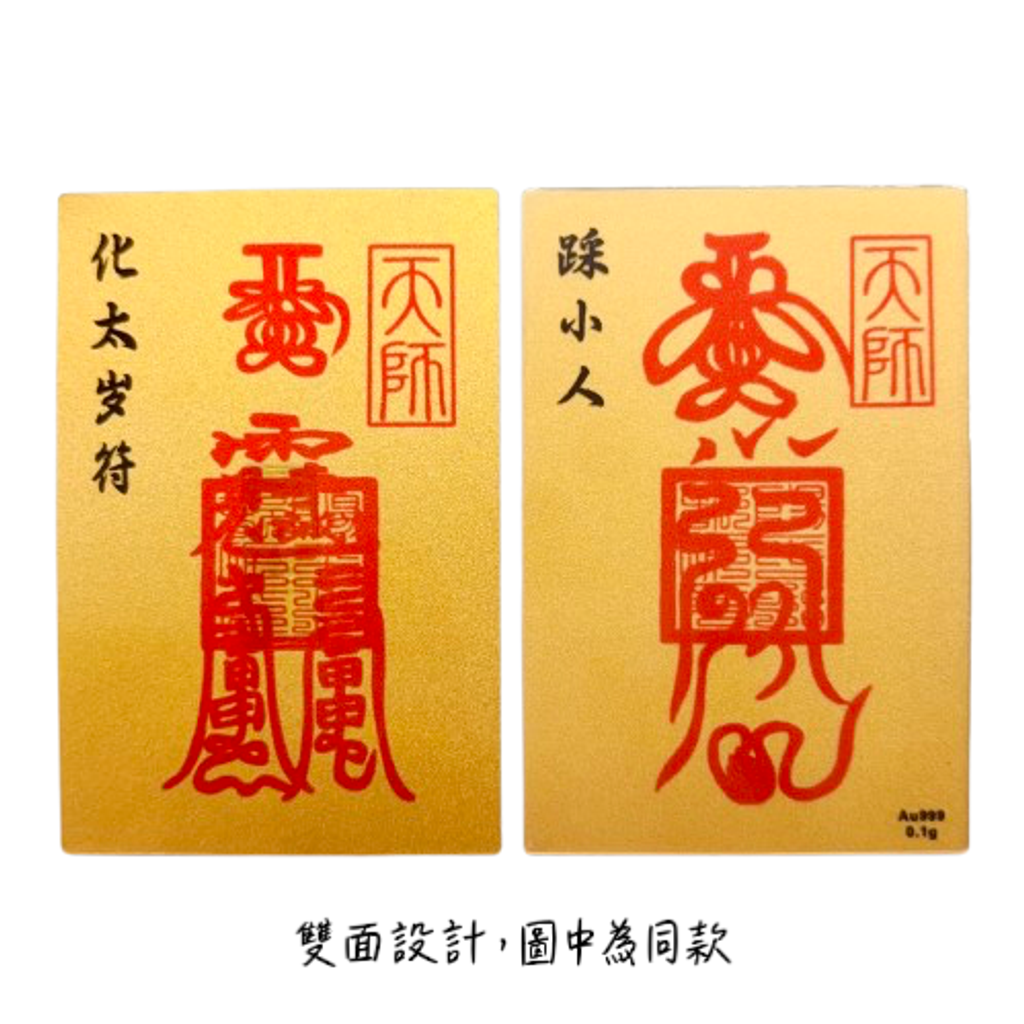 化太岁符
天師
踩小人
天師
Au999
0.1g
雙面設計，圖中為同款